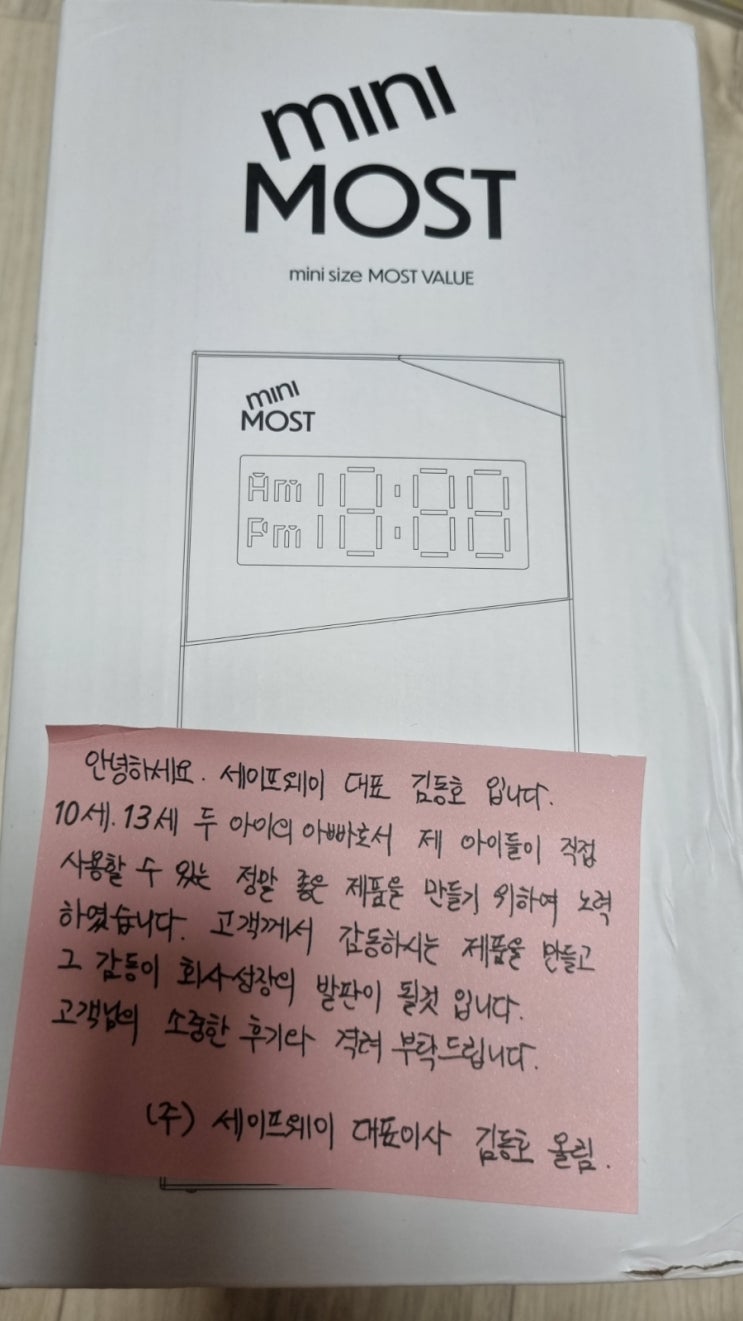 mini
MOST
mini size MOST VALUE
mini
MOST
Am 18:88
Pm
안녕하세요. 세이프웨이 대표 김동호 입니다.
10세. 13세 두 아이의 아빠로서 제 아이들이 직접
사용할 수 있는 정말 좋은 제품을 만들기 위하여 노력
하였습니다. 고객께서 감동하시는 제품을 만들고
그 감동이 회사성장의 발판이 될것 입니다.
고객님의 소중한 후기와 격려 부탁드립니다.
(주) 세이프웨이 대표이사 김동호 올림.